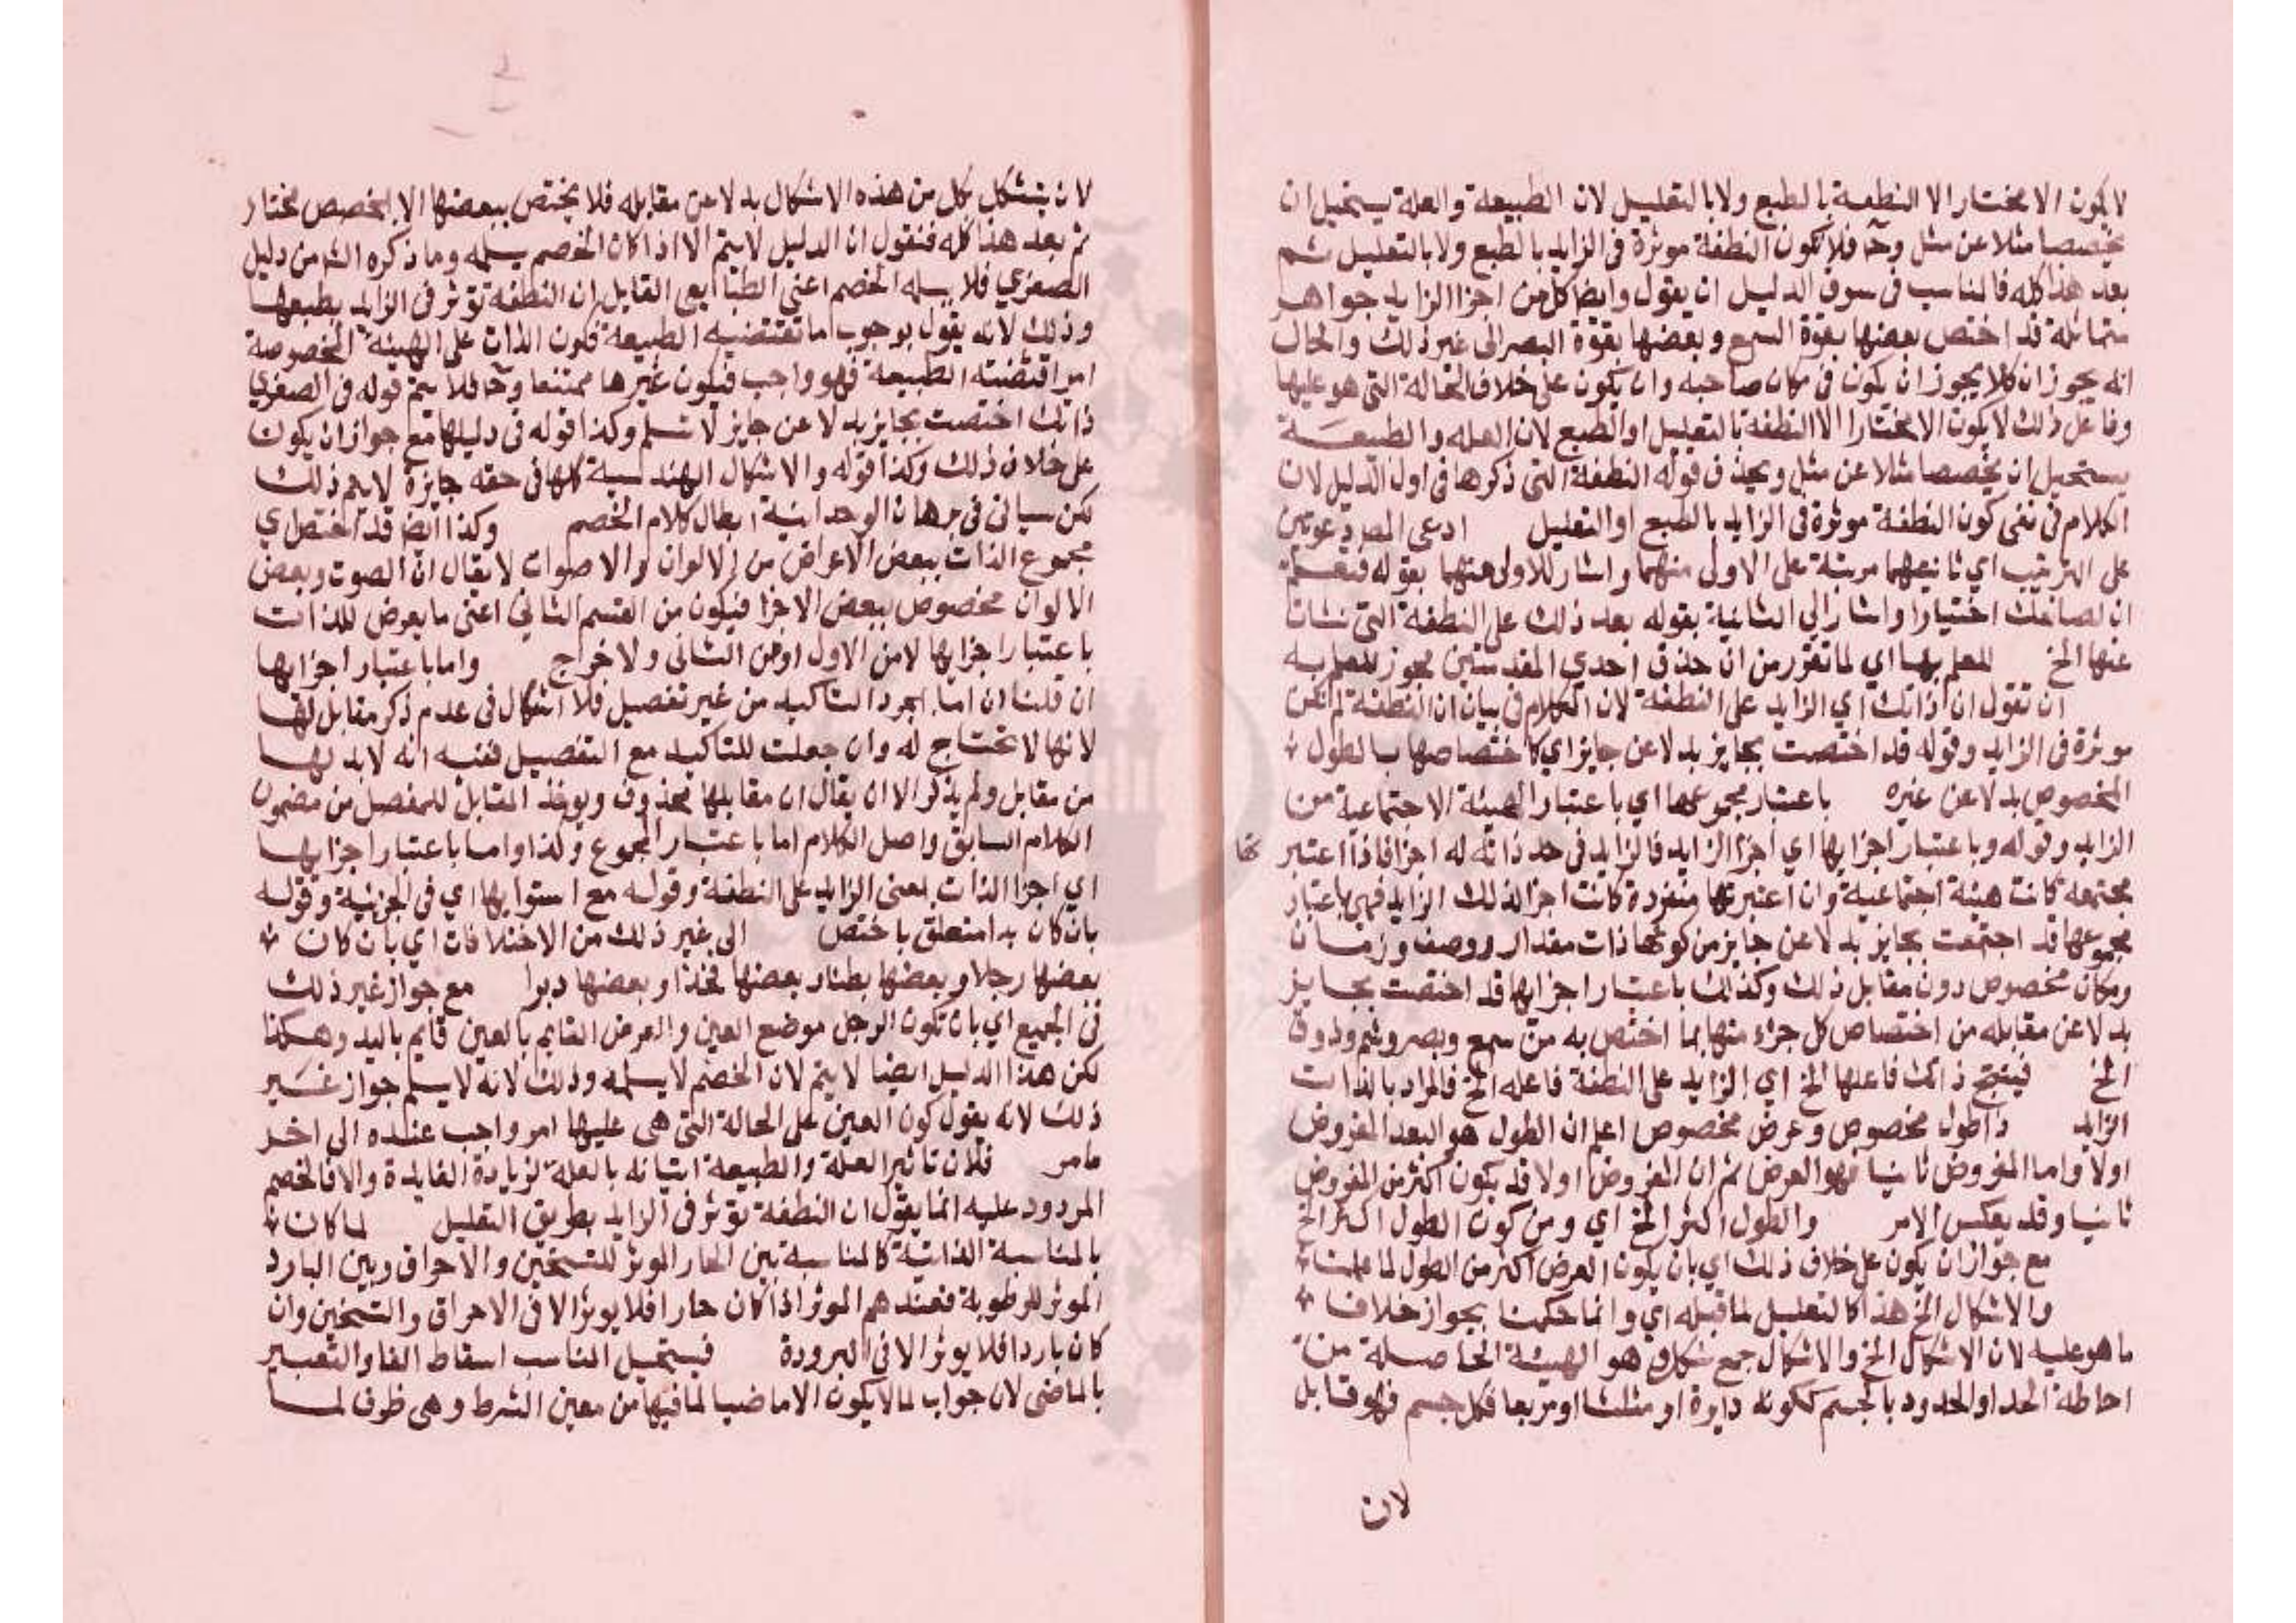 لا يكون الا مختارا لا النطفة بالطبع ولا بالتعليل لان الطبيعة والعلة يستحيل ان
يخصصا مثلا عن مثل وحـ فلا تكون النطفة موثرة في الزايد بالطبع ولا بالتعليل ثم
بعد هذا كله فالمناسب في سوق الدليل ان يقول وايضا كل من اجزا الزايد جواهر
متماثلة قد اختص بعضها بقوة السمع وبعضها بقوة البصر الى غير ذلك والحال
انه يجوز ان كلا يجوز ان يكون في مكان صاحبه وان يكون على خلاف الحالة التي هو عليها
وفاعل ذلك لا يكون الا مختارا لا النطفة بالتعليل او الطبع لان العلة والطبيعة
يستحيل ان يخصصا مثلا عن مثل ويحذف قوله النطفة التي ذكرها في اول الدليل لان
الكلام في نفي كون النطفة موثرة في الزايد بالطبع او التعليل ادعى المص دعوتين
على الترتيب اي ثانيتهما مرتبة على الاولى منهما واشار للاولى منهما بقوله فتعلم
ان لصانعك اختيارا واشار الى الثانية بقوله بعد ذلك على النطفة التي نشات
عنها الخ للعلم بها اي لما تقرر من ان حذف احدي المقدمتين يجوز للعلم به
ان تقول ان ذاتك اي الزايد على النطفة لان الكلام في بيان ان النطفة لم تكن
موثرة في الزايد وقوله قد اختصت بجايز بدلا عن جايز اي كاختصاصها بالطول
المخصوص بدلا عن غيره باعتبار مجموعها اي باعتبار الهيئة الاجتماعية من
الزايد وقوله وباعتبار اجزايها اي اجزا الزايد فالزايد في حد ذاته له اجزا فاذا اعتبر
مجتمعة كانت هيئة اجتماعية وان اعتبرتها منفردة كانت اجزا لذلك الزايد فهي باعتبار
مجموعها قد اجتمعت بجايز بدلا عن جايز من كونها ذات مقدار ووصف وزمان
ومكان مخصوص دون مقابل ذلك وكذلك باعتبار اجزايها قد اختصت بجايز
بدلا عن مقابله من اختصاص كل جزء منها بما اختص به من سمع وبصر وشم وذوق
الخ فينتج ذاتك فاعلها الخ اي الزايد على النطفة فاعله الخ فالمراد بالذات
الزايد ذا طول مخصوص وعرض مخصوص اعلم ان الطول هو البعد المفروض
اولا واما المفروض ثانيا فهو العرض ثم ان المفروض اولا قد يكون اكثر من المفروض
ثانيا وقد يعكس الامر والطول اكثر الخ اي ومن كون الطول اكثر الخ
مع جواز ان يكون على خلاف ذلك اي بان يكون العرض اكثر من الطول لما علمت
والاشكال الخ هذا كالتعليل لما قبله اي وانما حكمنا بجواز خلاف
ما هو عليه لان الاشكال الخ والاشكال جمع شكل وهو الهيئة الحاصلة من
احاطة الحد او الحدود بالجسم ككونه دايرة او مثلثا او مربعا فكل جسم فهو قابل
لان
لان يتشكل بكل من هذه الاشكال بدلا عن مقابله فلا يختص ببعضها الا بمخصص مختار
ثم بعد هذا كله فنقول ان الدليل لا يتم الا اذا كان الخصم يسلمه وما ذكره الش من دليل
الصغري فلا يسلمه الخصم اعني الطبايعي القايل ان النطفة توثر في الزايد بطبعها
وذلك لانه يقول بوجوب ما تقتضيه الطبيعة فكون الذات على الهيئة المخصوصة
امر اقتضته الطبيعة فهو واجب فيكون غيرها ممتنعا وحـ فلا يتم قوله في الصغري
ذاتك اختصت بجايز بدلا عن جايز لا تسلم وكذا قوله في دليلها مع جواز ان يكون
على خلاف ذلك وكذا قوله والاشكال الهندسية كلها في حقه جايزة لا يتم ذلك
لكن سياتي في برهان الوحدانية ابطال كلام الخصم وكذا ايضا قد اختص اي
مجموع الذات ببعض الاعراض من الالوان والاصوات لا يقال ان الصوت وبعض
الالوان مخصوص ببعض الاجزا فيكون من القسم الثاني اعني ما يعرض للذات
باعتبار اجزايها لا من الاول او من الثاني ولا خراج واما باعتبار اجزايها
ان قلنا ان اما لمجرد التاكيد من غير تفصيل فلا اشكال في عدم ذكر مقابل لها
لانها لا تحتاج له وان جعلت للتاكيد مع التفصيل ففيه انه لا بد لها
من مقابل ولم يذكر الا ان يقال ان مقابلها محذوف ويوخذ المقابل للمفصل من مضمون
الكلام السابق واصل الكلام اما باعتبار المجموع وكذا واما باعتبار اجزايها
اي اجزا الذات بمعنى الزايد على النطفة وقوله مع استوايها اي في الجرمية وقوله
بان كان يدا متعلق باختص الى غير ذلك من الاختلافات اي بان كان
بعضها رجلا وبعضها بطنا وبعضها فخذا وبعضها دبرا مع جواز غير ذلك
في الجميع اي بان تكون الرجل موضع العين والعرض القايم بالعين قايم باليد وهكذا
لكن هذا الدليل ايضا لا يتم لان الخصم لا يسلمه وذلك لانه لا يسلم جواز غير
ذلك لانه يقول كون العين على الحالة التي هي عليها امر واجب عنده الى اخر
مامر فلان تاثير العلة والطبيعة اتيانه بالعلة لزيادة الفايدة والا فالخصم
المردود عليه انما يقول ان النطفة توثر في الزايد بطريق التعليل لما كان
بالمناسبة الذاتية كالمناسبة بين الحار الموثر للتسخين والاحراق وبين البارد
الموثر للرطوبة فعندهم الموثر اذا كان حارا فلا يوثر الا في الاحراق والتسخين وان
كان باردا فلا يوثر الا في البرودة فيستحيل المناسب اسقاط الفا والتعبير
بالماضي لان جواب لما لا يكون الا ماضيا لما فيها من معين الشرط وهي ظرف لما